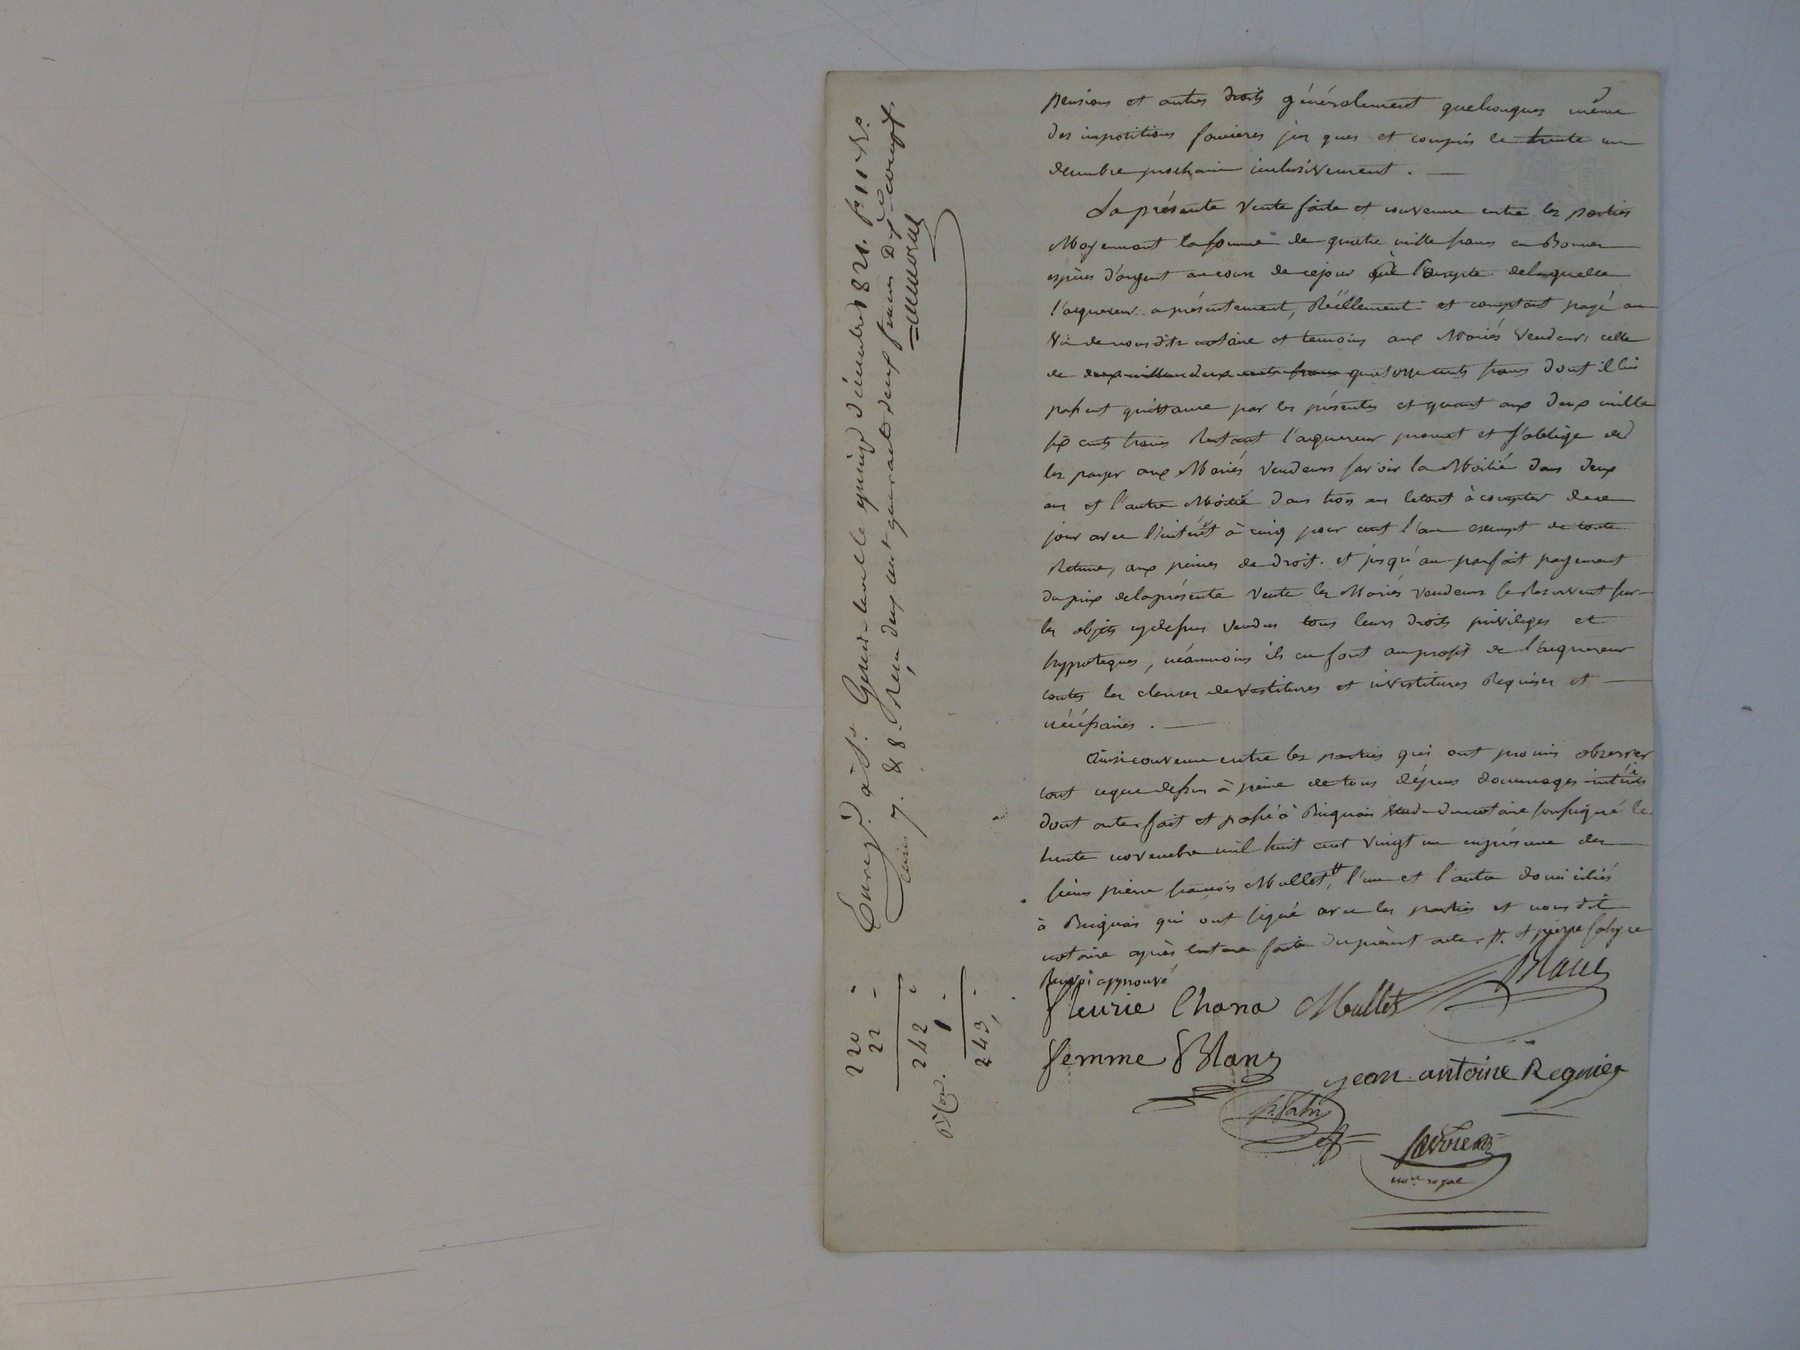 pensions et autres droits généralement quelconques même
des impositions foncieres jus ques et compris le trente un
decembre prochain inclusivement . —
La présente vente faite et convenue entre les parties
Moyennant la somme de quatre mille francs en Bonnes
espèces d'argent au cours de ce jour à Compte de laquelle
l'acquereur a présentement, Réellement et comptant payé au
Vu de nous dits notaire et temoins aux Mariés Vendeurs, celle
de deux mille deux cents francs quatorze cents francs dont il lui
passent quittance par les présentes et quant aux deux mille
six cents francs Restant l'acquereur promet et s'oblige de
les payer aux Mariés Vendeurs savoir la Moitié dans deux
ans et l'autre Moitié dans trois ans le tout à compter de ce
jour avec l'intérêt à cinq pour cent l'an exempt de toute
Retenue, aux peines de droit. et jusqu'au parfait payement
du prix de la présente Vente les Mariés vendeurs se Réservent sur
les objets cy dessus vendus tous leurs droits privileges et
hypoteques, néanmoins ils en font au profit de l'acquereur
toutes les clauses devestitures et investitures Requises et —
nécéssaires . —
Ainsi convenu entre les parties qui ont promis observer
tout ce que dessus à peine de tous dépens dommages intérêts
dont acte. fait et passé à Bugnais Etude du notaire soussigné le
trente novembre mil huit cent vingt un en présence des
sieurs pierre françois Mullet #, l'un et l'autre domiciliés
à Bugnais qui ont signé avec les parties et nous dit
notaire après lecture faite du présent acte. #. et pierre fabre
Renvoi approuvé
fleurie Chana Mullet Blanc
femme Blanc
jean antoine Regnier
p. fabre
nore royal
Enregé. à St. Genis-laville quinze décembre 1821. fo 11 Vo.
cases 7. & 8. Reçu deux cent quarante deux francs Dxe compt.
220 -
22 -
242 -
1 -
243 -